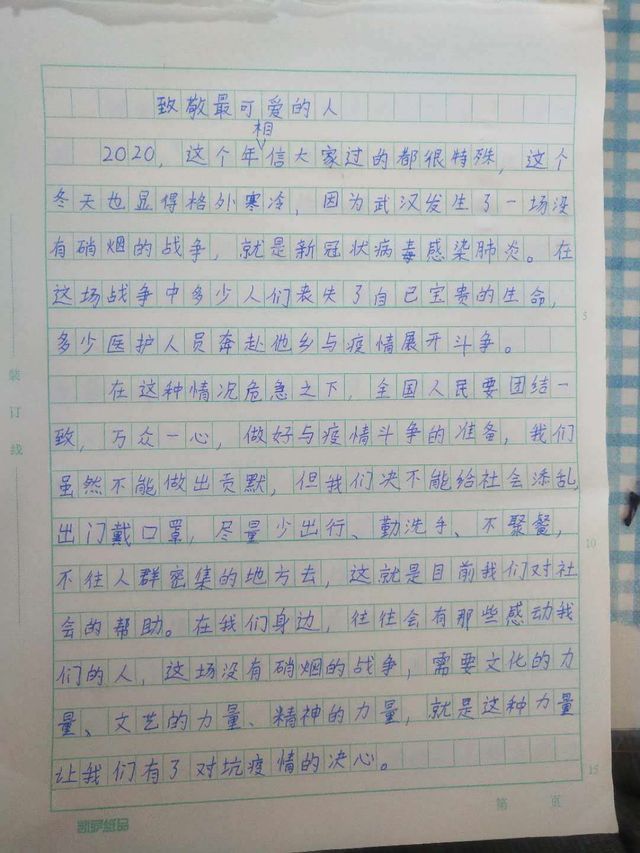 致敬最可爱的人
相
2020，这个年信大家过的都很特殊，这个
冬天也显得格外寒冷，因为武汉发生了一场没
有硝烟的战争，就是新冠状病毒感染肺炎。在
这场战争中多少人们丧失了自已宝贵的生命，
多少医护人员奔赴他乡与疫情展开斗争。
5
在这种情况危急之下，全国人民要团结一
致，万众一心，做好与疫情斗争的准备，我们
虽然不能做出贡默，但我们决不能给社会添乱，
出门戴口罩，尽量少出行、勤洗手、不聚餐，
10
不往人群密集的地方去，这就是目前我们对社
会的帮助。在我们身边，往往会有那些感动我
们的人，这场没有硝烟的战争，需要文化的力
量、文艺的力量、精神的力量，就是这种力量
让我们有了对坑疫情的决心。
15
第 页
凯萨纸品
装订线